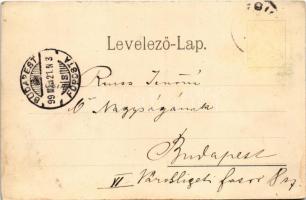 Levelező-Lap.
BUDAPEST
FŐPOSTA
Jenőné
Ő Nagyságának
Budapest
VI Városligeti fasor